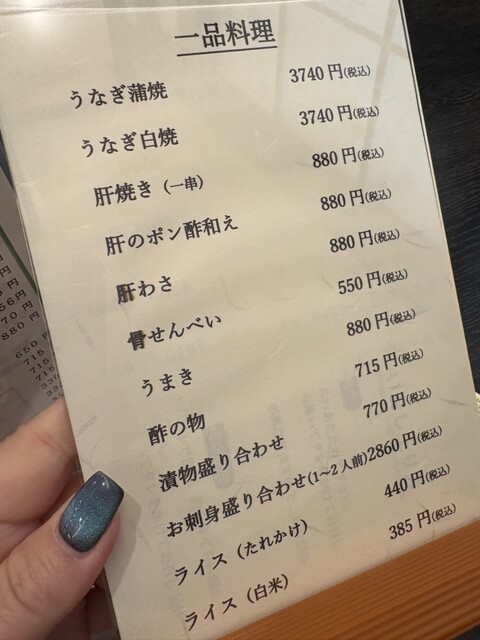 一品料理
うなぎ蒲焼 3740円(税込)
うなぎ白焼 3740円(税込)
肝焼き（一串） 880円(税込)
肝のポン酢和え 880円(税込)
肝わさ 880円(税込)
骨せんべい 550円(税込)
うまき 880円(税込)
酢の物 715円(税込)
漬物盛り合わせ 770円(税込)
お刺身盛り合わせ(1～2人前) 2860円(税込)
ライス（たれかけ） 440円(税込)
ライス（白米） 385円(税込)
880 円
650 円
715